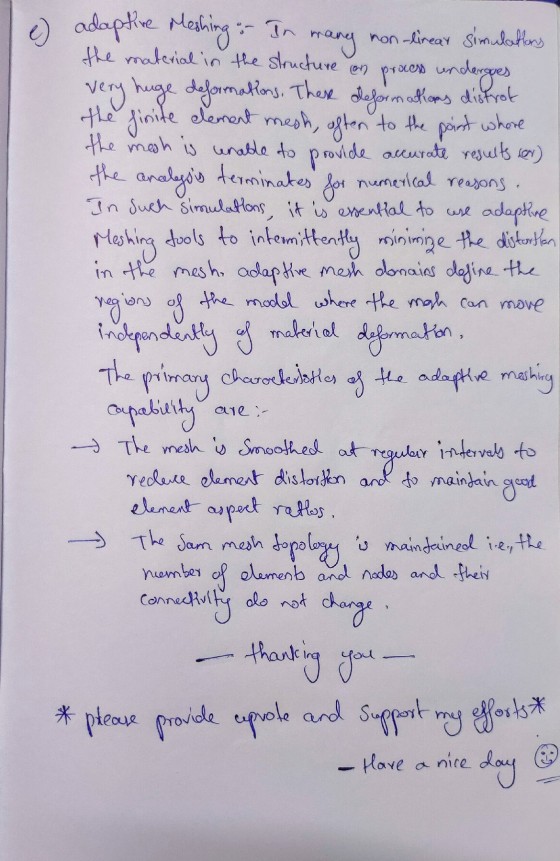 e) adaptive Meshing :- In many non-linear simulations
the material in the structure (or) process undergoes
very huge deformations. These deformations distrot
the finite element mesh, often to the point where
the mesh is unable to provide accurate results (or)
the analysis terminates for numerical reasons.
In such simulations, it is essential to use adaptive
Meshing tools to intermittently minimize the distortion
in the mesh. adaptive mesh domains define the
regions of the model where the mesh can move
independently of material deformation.
The primary characteristics of the adaptive meshing
capability are :-
→ The mesh is Smoothed at regular intervals to
reduce element distortion and to maintain good
element aspect ratios.
→ The Sam mesh topology is maintained i.e., the
number of elements and nodes and their
connectivity do not change.
— thanking you —
* please provide upvote and Support my efforts *
- Have a nice day ☺